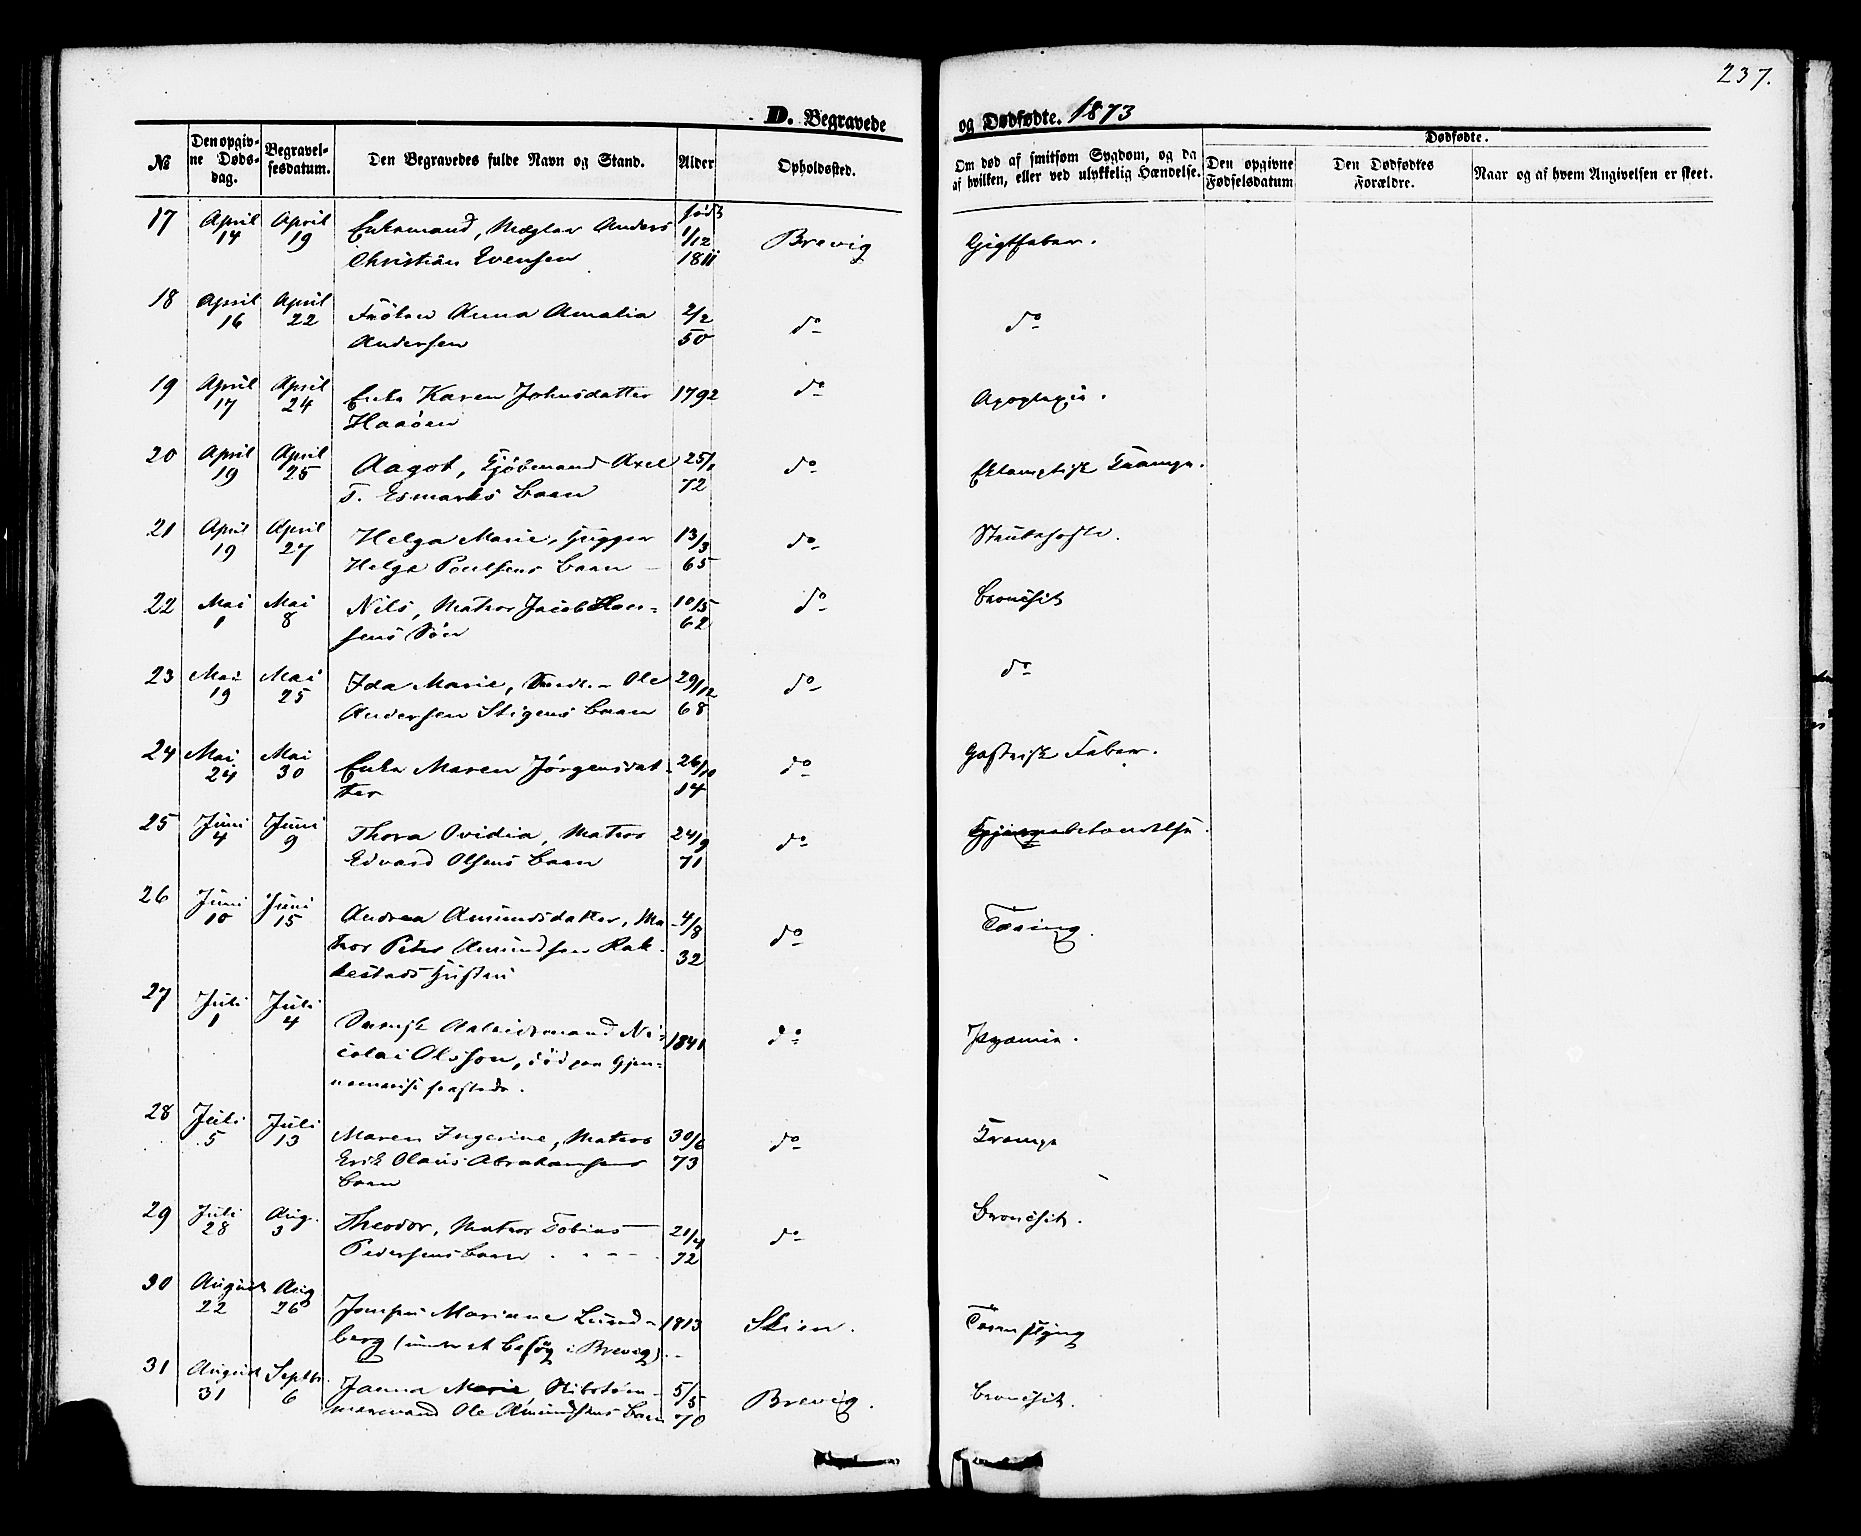 237.
D. Begravede og Dødfødte. 1873
№ Den opgivne Døds-dag. Begravelsesdatum. Den Begravedes fulde Navn og Stand. Alder Opholdssted. Om død af smitsom Sygdom, og da af hvilken, eller ved ulykkelig Hændelse. Dødfødte.
Den opgivne Fødselsdatum Den Dødfødtes Forældre. Naar og af hvem Angivelsen er skeet.
17 April 14 April 19 Enkemand, Mægler Anders født 1/12
Christian Evensen 1811 Brevig Gigtfeber.
18 April 16 April 22 Frøken Anna Amalia 2/2
Andersen 50 do do
19 April 17 April 24 Enke Karen Johnsdatter 1792 do Apoplexie.
Haaøen
20 April 19 April 25 Aagot, Kjøbmand Axel 25/1
T. Esmarks Barn 72 do Eklamptisk Krampe.
21 April 19 April 27 Helga Marie, Helge Poulsens Barn 13/3 65 do Strubehoste.
22 Mai 1 Mai 8 Nils, Matros Jacob Han-
sens Søn 10/5 62 do Bronchit
23 Mai 19 Mai 25 Ida Marie, Ole
Andersen Stigens Barn 29/12 68 do do
24 Mai 24 Mai 30 Enke Maren Jørgensdat-
ter 26/10 14 do Gastrisk Feber.
25 Juni 4 Juni 9 Thora Ovidia, Matros
Edvard Olsens Barn 24/9 71 do
26 Juni 10 Juni 15 Andrea Amundsdatter, Ma-
tros Peter Amundsen Rak-
kestads Hustru 4/8 32 do Tæring.
27 Juli 1 Juli 4 Svensk Arbeidsmand Ni-
colai Olsson, død paa Gjen-
nemreise 1841 do Pyæmie.
28 Juli 5 Juli 13 Maren Ingerine, Matros
Erik Olaus Abrahamsens
Barn 30/6 73 do Krampe
29 Juli 28 Aug. 3 Theodor, Matros Tobias
Pedersens Barn 21/4 72 do Bronchit.
30 August 22 Aug 26 Jomfru Mariane Lund-
berg (under et Besøg i Brevig). 1813 Skien.
31 August 31 Septbr. 6 Janna Marie,
Ole Amundsens Barn 5/5 70 Brevig. Bronchit.